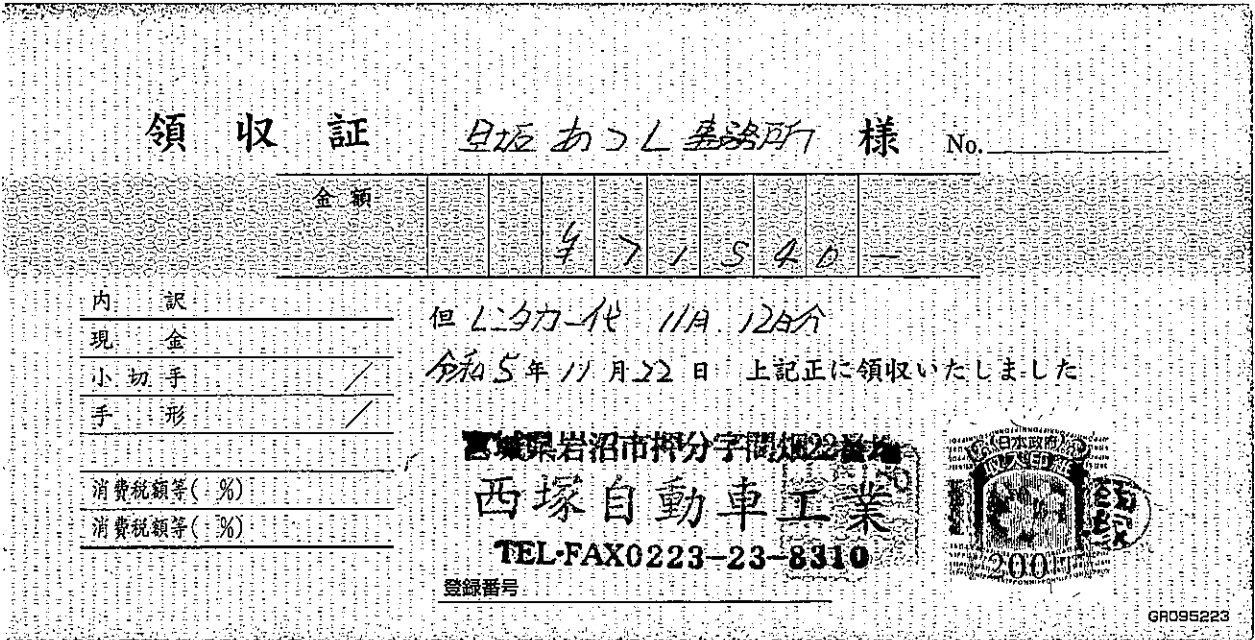 領収証 旦坂あつし事務所 様 No.
金額 ¥71540-
内訳
現金
小切手 /
手形 /
消費税額等( %)
消費税額等( %)
但 レンタカー代 11月.12月分
令和5年11月22日 上記正に領収いたしました
宮城県岩沼市押分字間畑22番地
西塚自動車工業
TEL・FAX0223-23-8310
登録番号
日本政府
収入印紙
200円
GR095223